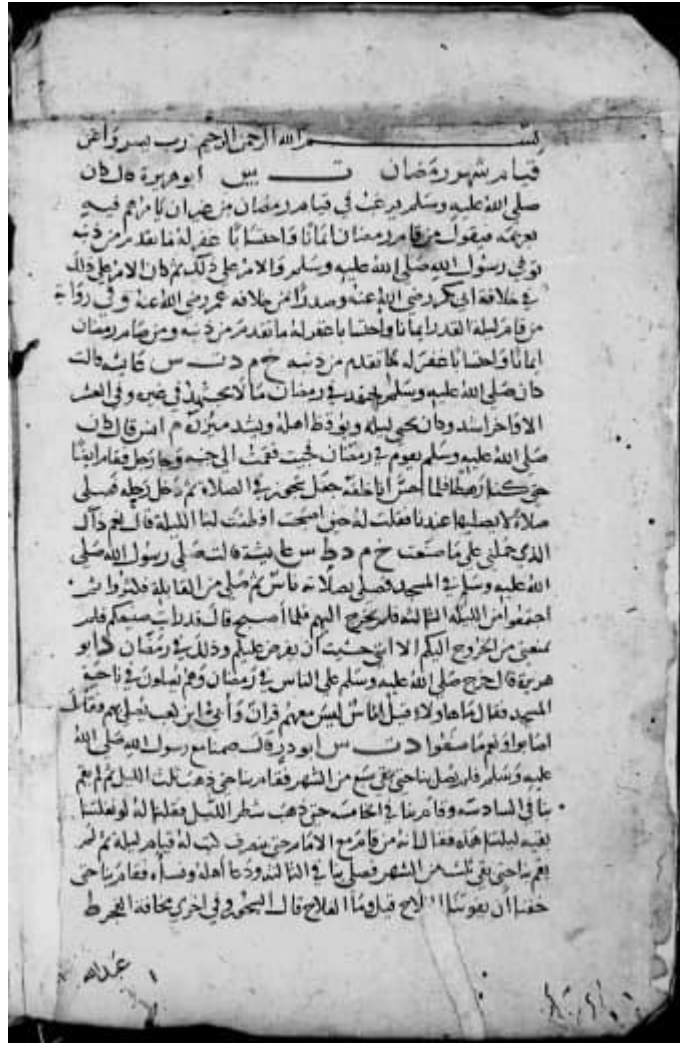 بسم الله الرحمن الرحيم رب يسر واعن
قيام شهر رمضان ت س ابو هريرة قال كان
صلى الله عليه وسلم يرغب في قيام رمضان من غير ان يامرهم فيه
بعزيمة فيقول من قام رمضان ايمانا واحتسابا غفر له ما تقدم من ذنبه
توفي رسول الله صلى الله عليه وسلم والامر على ذلك ثم كان الامر على ذلك
في خلافة ابي بكر رضي الله عنه وصدرا من خلافة عمر رضي الله عنه وفي رواية
من قام ليلة القدر ايمانا واحتسابا غفر له ما تقدم من ذنبه ومن صام رمضان
ايمانا واحتسابا غفر له ما تقدم من ذنبه خ م د ت س عائشة قالت
كان صلى الله عليه وسلم يجتهد في رمضان مالا يجتهد في غيره وفي العشر
الاواخر اشد وكان يحيي ليله ويوقظ اهله ويشد ميزره م انس قال كان
صلى الله عليه وسلم يقوم في رمضان فجيت فقمت الى جنبه وجا رجل فقام ايضا
حتى كنا رهطا فلما احس انا خلفه جعل يتجوز في الصلاة ثم دخل رحله فصلى
صلاة لا يصليها عندنا فقلت له حين اصبحت افطنت لنا الليلة قال نعم ذاك
الذي حملني على ما صنعت خ م د ط س عايشة قالت صلى رسول الله صلى
الله عليه وسلم في المسجد فصلى بصلاته ناس ثم صلى من القابلة فكثروا ثم
اجتمعوا من الليلة الثالثة فلم يخرج اليهم فلما اصبح قال قد رايت صنيعكم فلم
يمنعني من الخروج اليكم الا اني خشيت ان يفرض عليكم وذلك في رمضان د ابو
هريرة قال خرج صلى الله عليه وسلم على الناس في رمضان وهم يصلون في ناحية
المسجد فقال ما هاولاء قيل اناس ليس معهم قران وأبي ابن كعب يصلي بهم فقال
اصابوا ونعم ما صنعوا د ت س ابو ذر قال صمنا مع رسول الله صلى الله
عليه وسلم فلم يصل بنا حتى بقي سبع من الشهر فقام بنا حتى ذهب ثلث الليل ثم لم يقم
بنا في السادسة وقام بنا في الخامسة حتى ذهب شطر الليل فقلنا له لو نفلتنا
بقية ليلتنا هذه فقال انه من قام مع الامام حتى ينصرف كتب له قيام ليلة ثم لم
يقم بنا حتى بقي ثلث من الشهر فصلى بنا في الثالثة ودعا اهله ونساه فقام بنا حتى
خفنا ان يفوتنا الفلاح قيل وما الفلاح قال السحور وفي اخرى مخافة الفجر ط
عبد الله